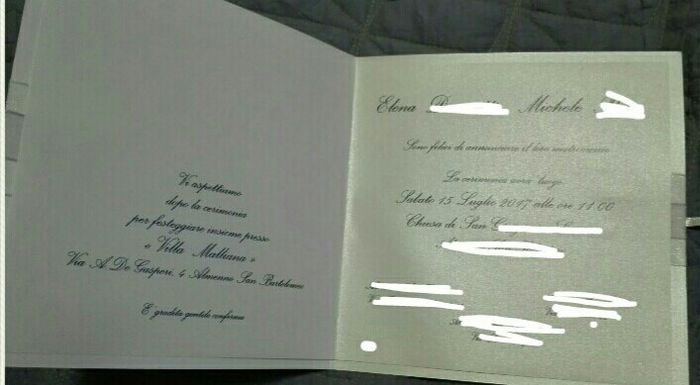 Vi aspettiamo
dopo la cerimonia
per festeggiare insieme presso
« Villa Malliana »
Via A. De Gasperi, 4 Almenno San Bartolomeo
E' gradita gentile conferma
Elena Michele
Sono felici di annunciare il loro matrimonio
La cerimonia avrà luogo
Sabato 15 Luglio 2017 alle ore 11.00
Chiesa di San